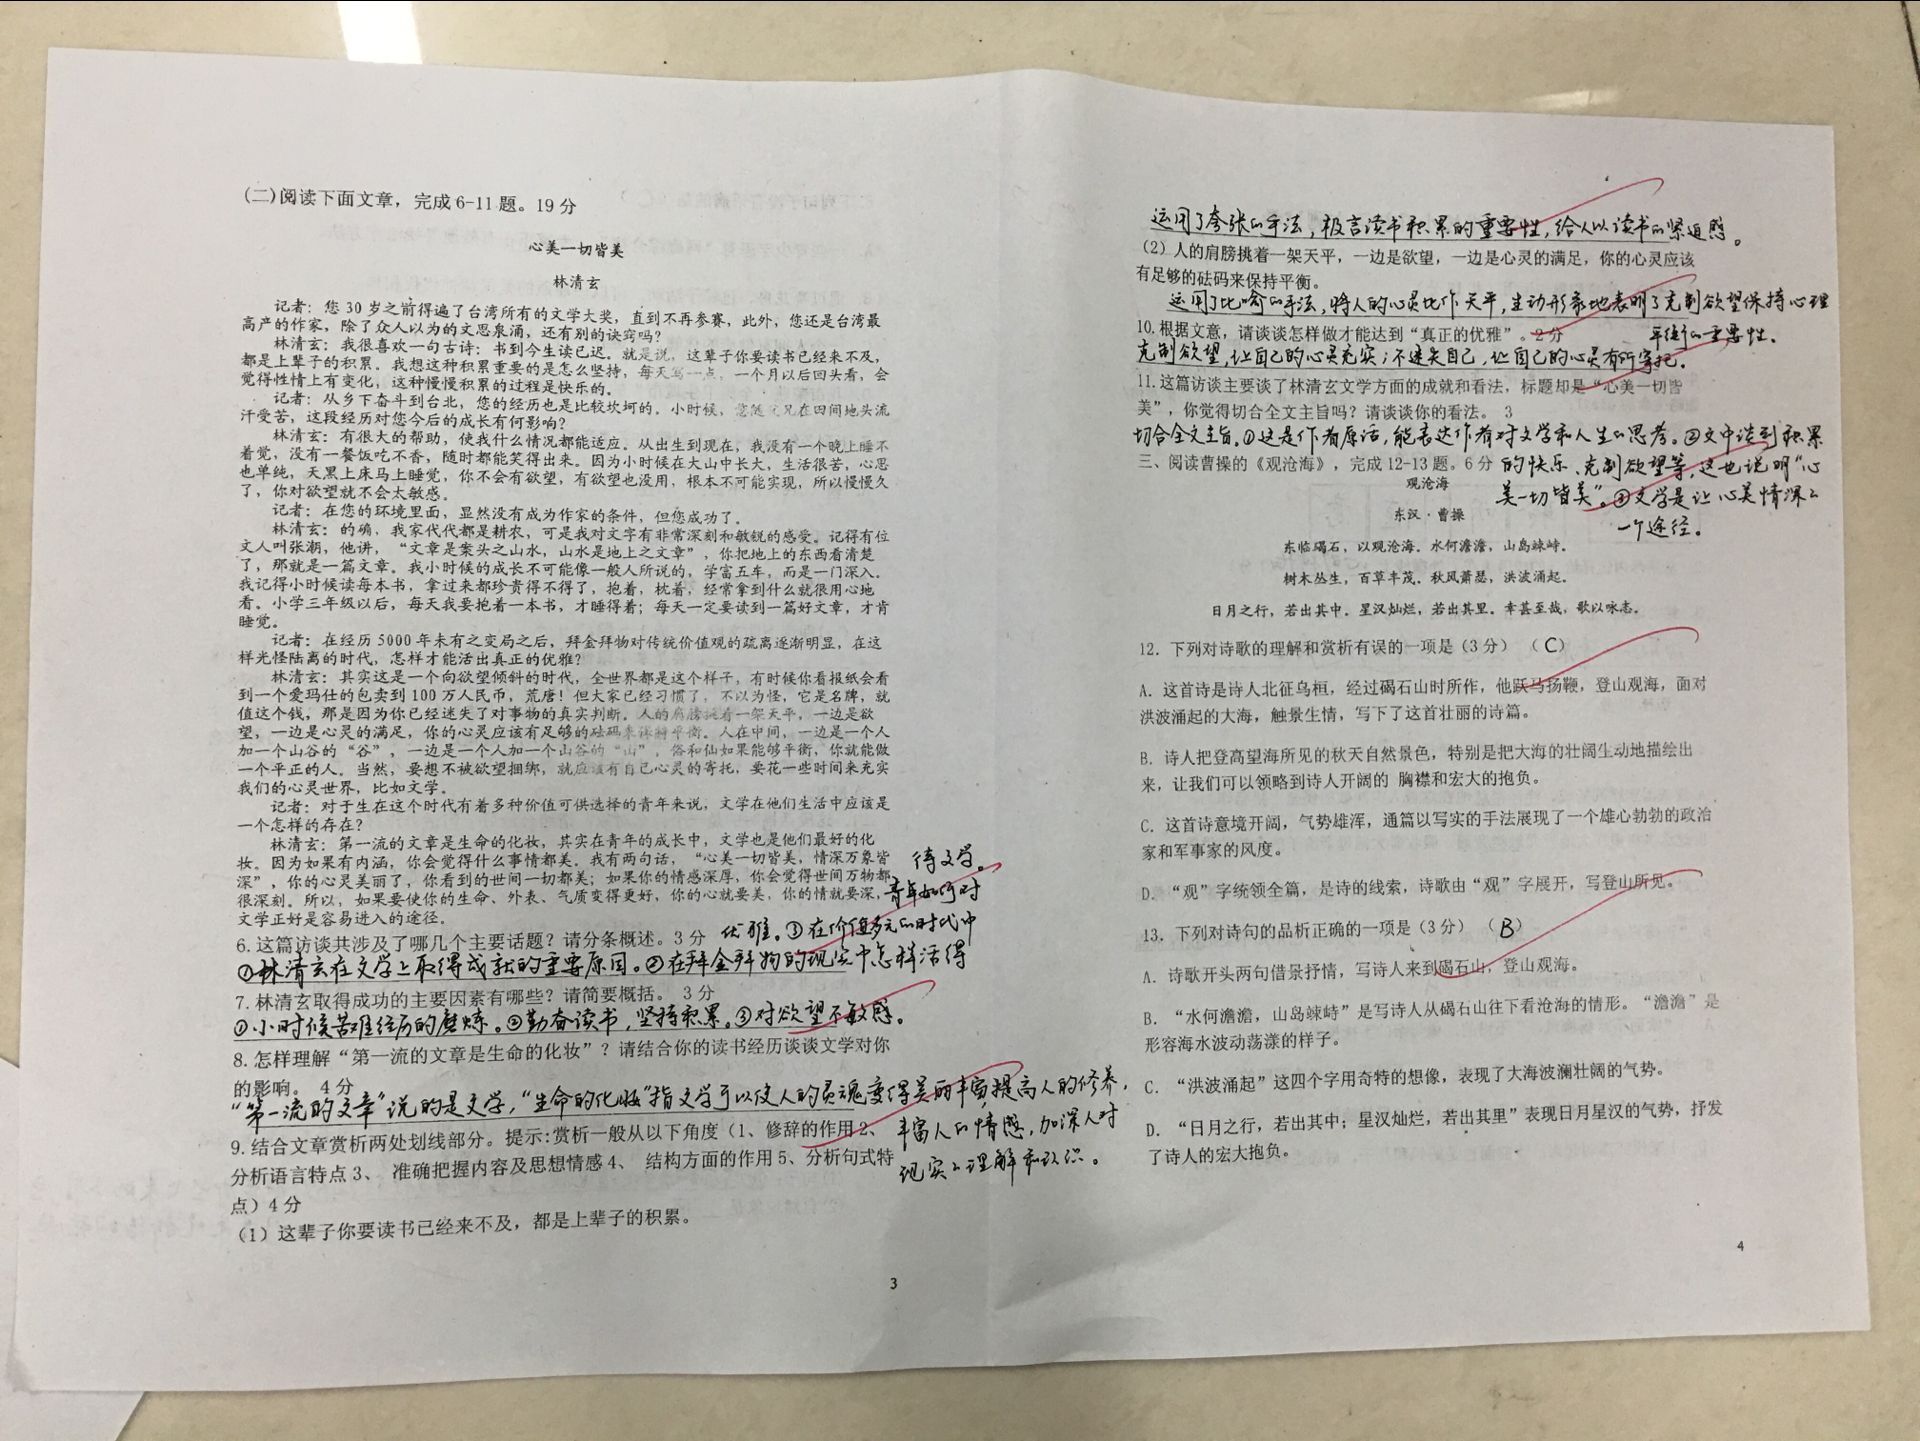 (二)阅读下面文章，完成6-11题。19分
心美一切皆美
林清玄
记者：您30岁之前得遍了台湾所有的文学大奖，直到不再参赛，此外，您还是台湾最
高产的作家，除了众人以为的文思泉涌，还有别的诀窍吗？
林清玄：我很喜欢一句古诗：书到今生读已迟。就是说，这辈子你要读书已经来不及，
都是上辈子的积累。我想这种积累重要的是怎么坚持，每天写一点，一个月以后回头看，会
觉得性情上有变化，这种慢慢积累的过程是快乐的。
记者：从乡下奋斗到台北，您的经历也是比较坎坷的，小时候，您随父兄在田间地头流
汗受苦，这段经历对您今后的成长有何影响？
林清玄：有很大的帮助，使我什么情况都能适应。从出生到现在，我没有一个晚上睡不
着觉，没有一餐饭吃不香，随时都能笑得出来。因为小时候在大山中长大，生活很苦，心思
也单纯，天黑上床马上睡觉，你不会有欲望，有欲望也没用，根本不可能实现，所以慢慢久
了，你对欲望就不会太敏感。
记者：在您的环境里面，显然没有成为作家的条件，但您成功了。
林清玄：的确，我家代代都是耕农，可是我对文字有非常深刻和敏锐的感受。记得有位
文人叫张潮，他讲，“文章是案头之山水，山水是地上之文章”，你把地上的东西看清楚
了，那就是一篇文章。我小时候的成长不可能像一般人所说的，学富五车，而是一门深入。
我记得小时候读每本书，拿过来都珍贵得不得了，抱着，枕着，经常拿到什么就很用心地
看。小学三年级以后，每天我要抱着一本书，才睡得着；每天一定要读到一篇好文章，才肯
睡觉。
记者：在经历5000年未有之变局之后，拜金拜物对传统价值观的疏离逐渐明显，在这
样光怪陆离的时代，怎样才能活出真正的优雅？
林清玄：其实这是一个向欲望倾斜的时代，全世界都是这个样子，有时候你看报纸会看
到一个爱玛仕的包卖到100万人民币，荒唐！但大家已经习惯了，不以为怪，它是名牌，就
值这个钱，那是因为你已经迷失了对事物的真实判断。人的肩膀挑着一架天平，一边是欲
望，一边是心灵的满足，你的心灵应该有足够的砝码来保持平衡。人在中间，一边是一个人
加一个山谷的“谷”，一边是一个人加一个山谷的“山”，俗和仙如果能够平衡，你就能做
一个平正的人。当然，要想不被欲望捆绑，就应该有自己心灵的寄托，要花一些时间来充实
我们的心灵世界，比如文学。
记者：对于生在这个时代有着多种价值可供选择的青年来说，文学在他们生活中应该是
一个怎样的存在？
林清玄：第一流的文章是生命的化妆，其实在青年的成长中，文学也是他们最好的化
妆。因为如果有内涵，你会觉得什么事情都美。我有两句话，“心美一切皆美，情深万象皆
深”，你的心灵美丽了，你看到的世间一切都美；如果你的情感深厚，你会觉得世间万物都
很深刻。所以，如果要使你的生命、外表、气质变得更好，你的心就要美，你的情就要深，
文学正好是容易进入的途径。
6.这篇访谈共涉及了哪几个主要话题？请分条概述。3分
①林清玄在文学上取得成就的重要原因。②在拜金拜物的现实中怎样活得
优雅。③在价值多元的时代中
青年如何对
待文学。
7.林清玄取得成功的主要因素有哪些？请简要概括。 3分
①小时候苦难经历的磨炼。②勤奋读书，坚持积累。③对欲望不敏感。
8.怎样理解“第一流的文章是生命的化妆”？请结合你的读书经历谈谈文学对你
的影响。 4分
“第一流的文章”说的是文学，“生命的化妆”指文学可以使人的灵魂变得美丽丰富，提高人的修养，
丰富人的情感，加深人对
现实的理解和认识。
9.结合文章赏析两处划线部分。提示:赏析一般从以下角度（1、修辞的作用2、
分析语言特点3、 准确把握内容及思想情感4、 结构方面的作用5、分析句式特
点）4分
（1）这辈子你要读书已经来不及，都是上辈子的积累。
3
运用了夸张的手法，极言读书积累的重要性，给人以读书的紧迫感。
（2）人的肩膀挑着一架天平，一边是欲望，一边是心灵的满足，你的心灵应该
有足够的砝码来保持平衡。
运用了比喻的手法，将人的心灵比作天平，生动形象地表明了克制欲望保持心理
平衡的重要性。
10.根据文意，请谈谈怎样做才能达到“真正的优雅”。2分
克制欲望，让自己的心灵充实；不迷失自己，让自己的心灵有所寄托。
11.这篇访谈主要谈了林清玄文学方面的成就和看法，标题却是“心美一切皆
美”，你觉得切合全文主旨吗？请谈谈你的看法。 3
切合全文主旨。①这是作者原话，能表达作者对文学和人生的思考。②文中谈到积累
的快乐、克制欲望等，这也说明“心
美一切皆美”。③文学是让心美情深的
一个途径。
三、阅读曹操的《观沧海》，完成12-13题。6分
观沧海
东汉·曹操
东临碣石，以观沧海。水何澹澹，山岛竦峙。
树木丛生，百草丰茂。秋风萧瑟，洪波涌起。
日月之行，若出其中。星汉灿烂，若出其里。幸甚至哉，歌以咏志。
12．下列对诗歌的理解和赏析有误的一项是(3分) （C）
A．这首诗是诗人北征乌桓，经过碣石山时所作，他跃马扬鞭，登山观海，面对
洪波涌起的大海，触景生情，写下了这首壮丽的诗篇。
B．诗人把登高望海所见的秋天自然景色，特别是把大海的壮阔生动地描绘出
来，让我们可以领略到诗人开阔的 胸襟和宏大的抱负。
C．这首诗意境开阔，气势雄浑，通篇以写实的手法展现了一个雄心勃勃的政治
家和军事家的风度。
D．“观”字统领全篇，是诗的线索，诗歌由“观”字展开，写登山所见。
13．下列对诗句的品析正确的一项是(3分) （B）
A．诗歌开头两句借景抒情，写诗人来到碣石山，登山观海。
B．“水何澹澹，山岛竦峙”是写诗人从碣石山往下看沧海的情形。“澹澹”是
形容海水波动荡漾的样子。
C．“洪波涌起”这四个字用奇特的想像，表现了大海波澜壮阔的气势。
D．“日月之行，若出其中；星汉灿烂，若出其里”表现日月星汉的气势，抒发
了诗人的宏大抱负。
4